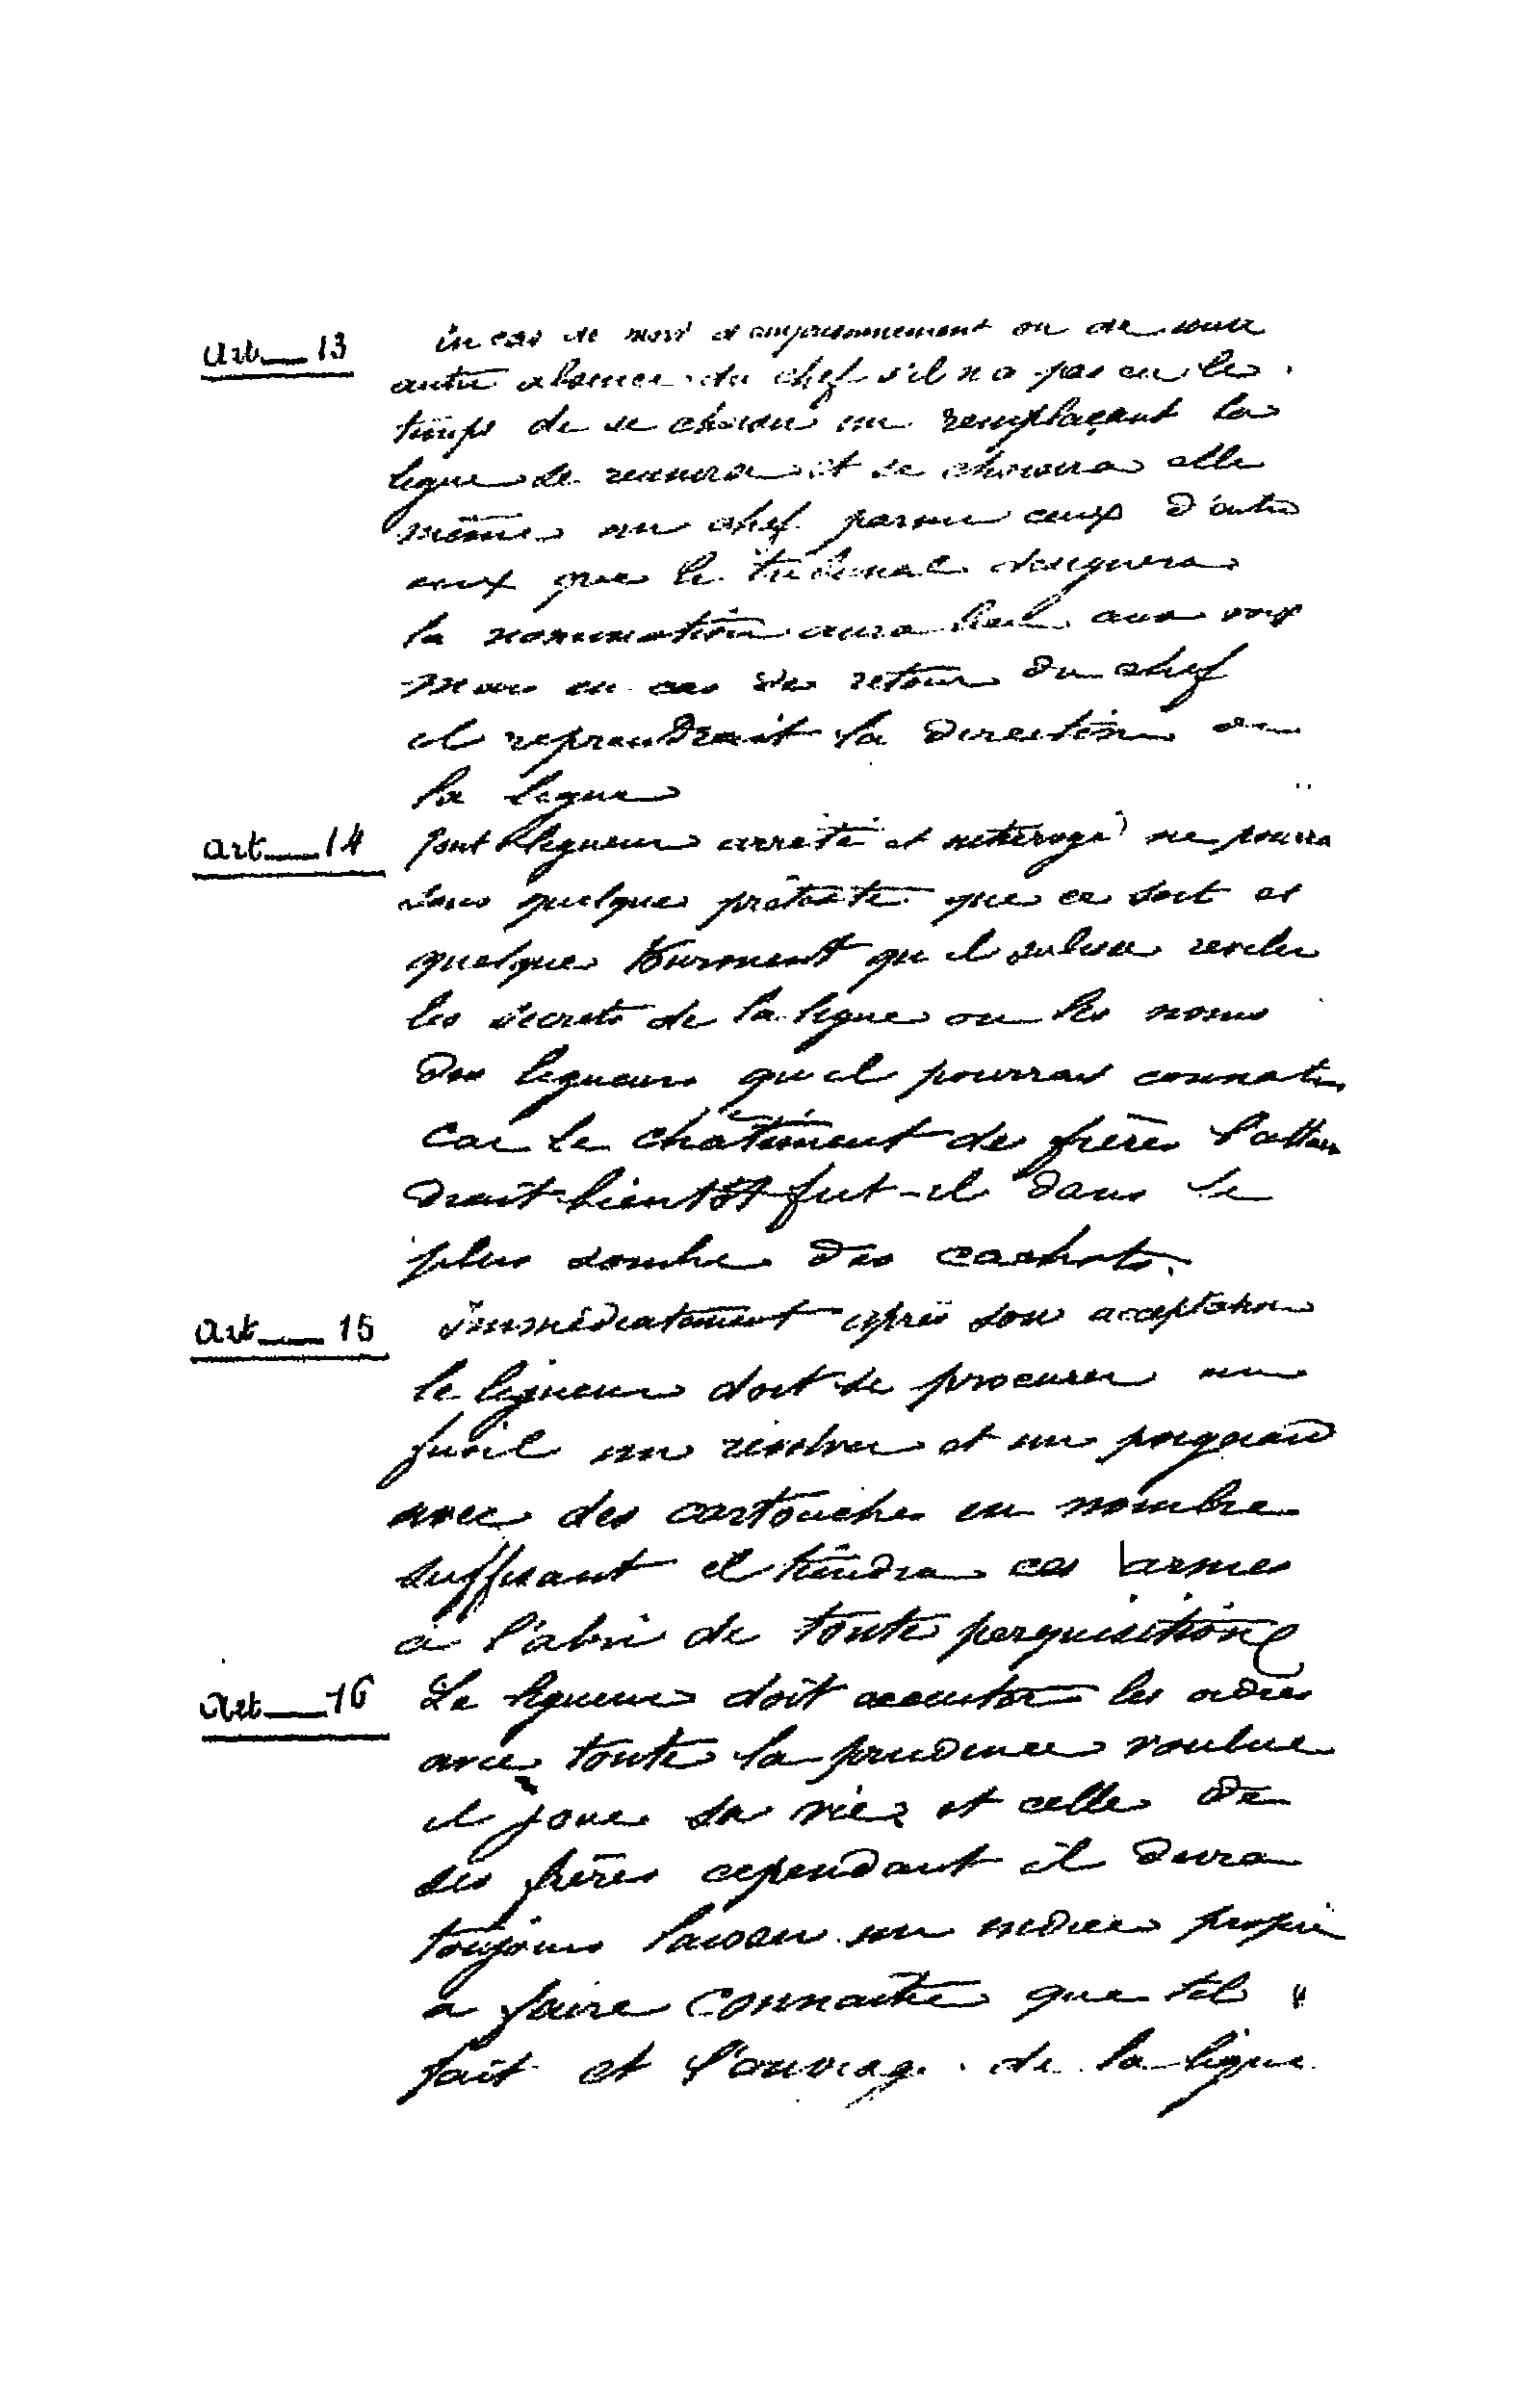 art 13 in cas de mort d'emprisonnement ou de toute
autre absence du chef s'il n'a pas eu le
temps de se choisir un remplaçant la
ligue se reunira et se choisira elle
même un chef parmi ceux d'entre
eux que le tribunal designera
la nomination aura lieu aux voix
mais en cas de retour du chef
il reprendrait la direction de
la ligue
art 14 tout ligueur arreté et interrogé ne pourra
sous quelque prétexte que ce soit et
quelque tourment qu'il subisse reveler
les secrets de la ligue ou les noms
des ligueurs qu'il pourrait connaitre
car le chatiment de frères l'atten
drait bientôt fut-il dans le
plus sombre des cachots.
art 15 Immédiatement après son acceptation
le ligueur doit se procurer un
fusil un revolver et un poignard
avec des cartouches en nombre
suffisant il tiendra ces armes
à l'abri de toute perquisition
art 16 Le ligueur doit executer les ordres
avec toute la prudence voulue
il joue sa vie et celle de
ses frères cependant il devra
toujours laisser un indice propre
a faire connaitre que tel
fait et l'ouvrage de la ligue